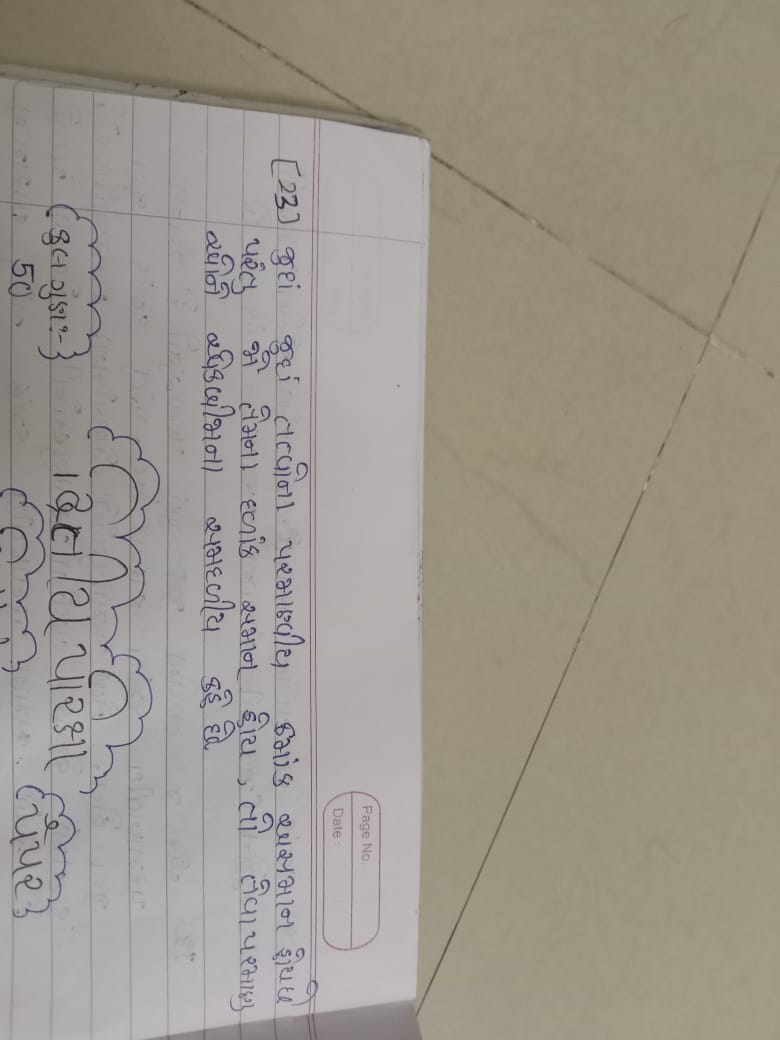 Page No.
Date:
[23] જુદાં જુદાં તત્વોના પરમાણ્વીય ક્રમાંક અસમાન હોયછે
પરંતુ જો તેમના દળાંક સમાન હોય, તો તેવા પરમાણુ
ઓને એકબીજાના સમદળીય કહે છે
દ્વિતીય પરિક્ષા
કુલ ગુણ:-
50
પેપર